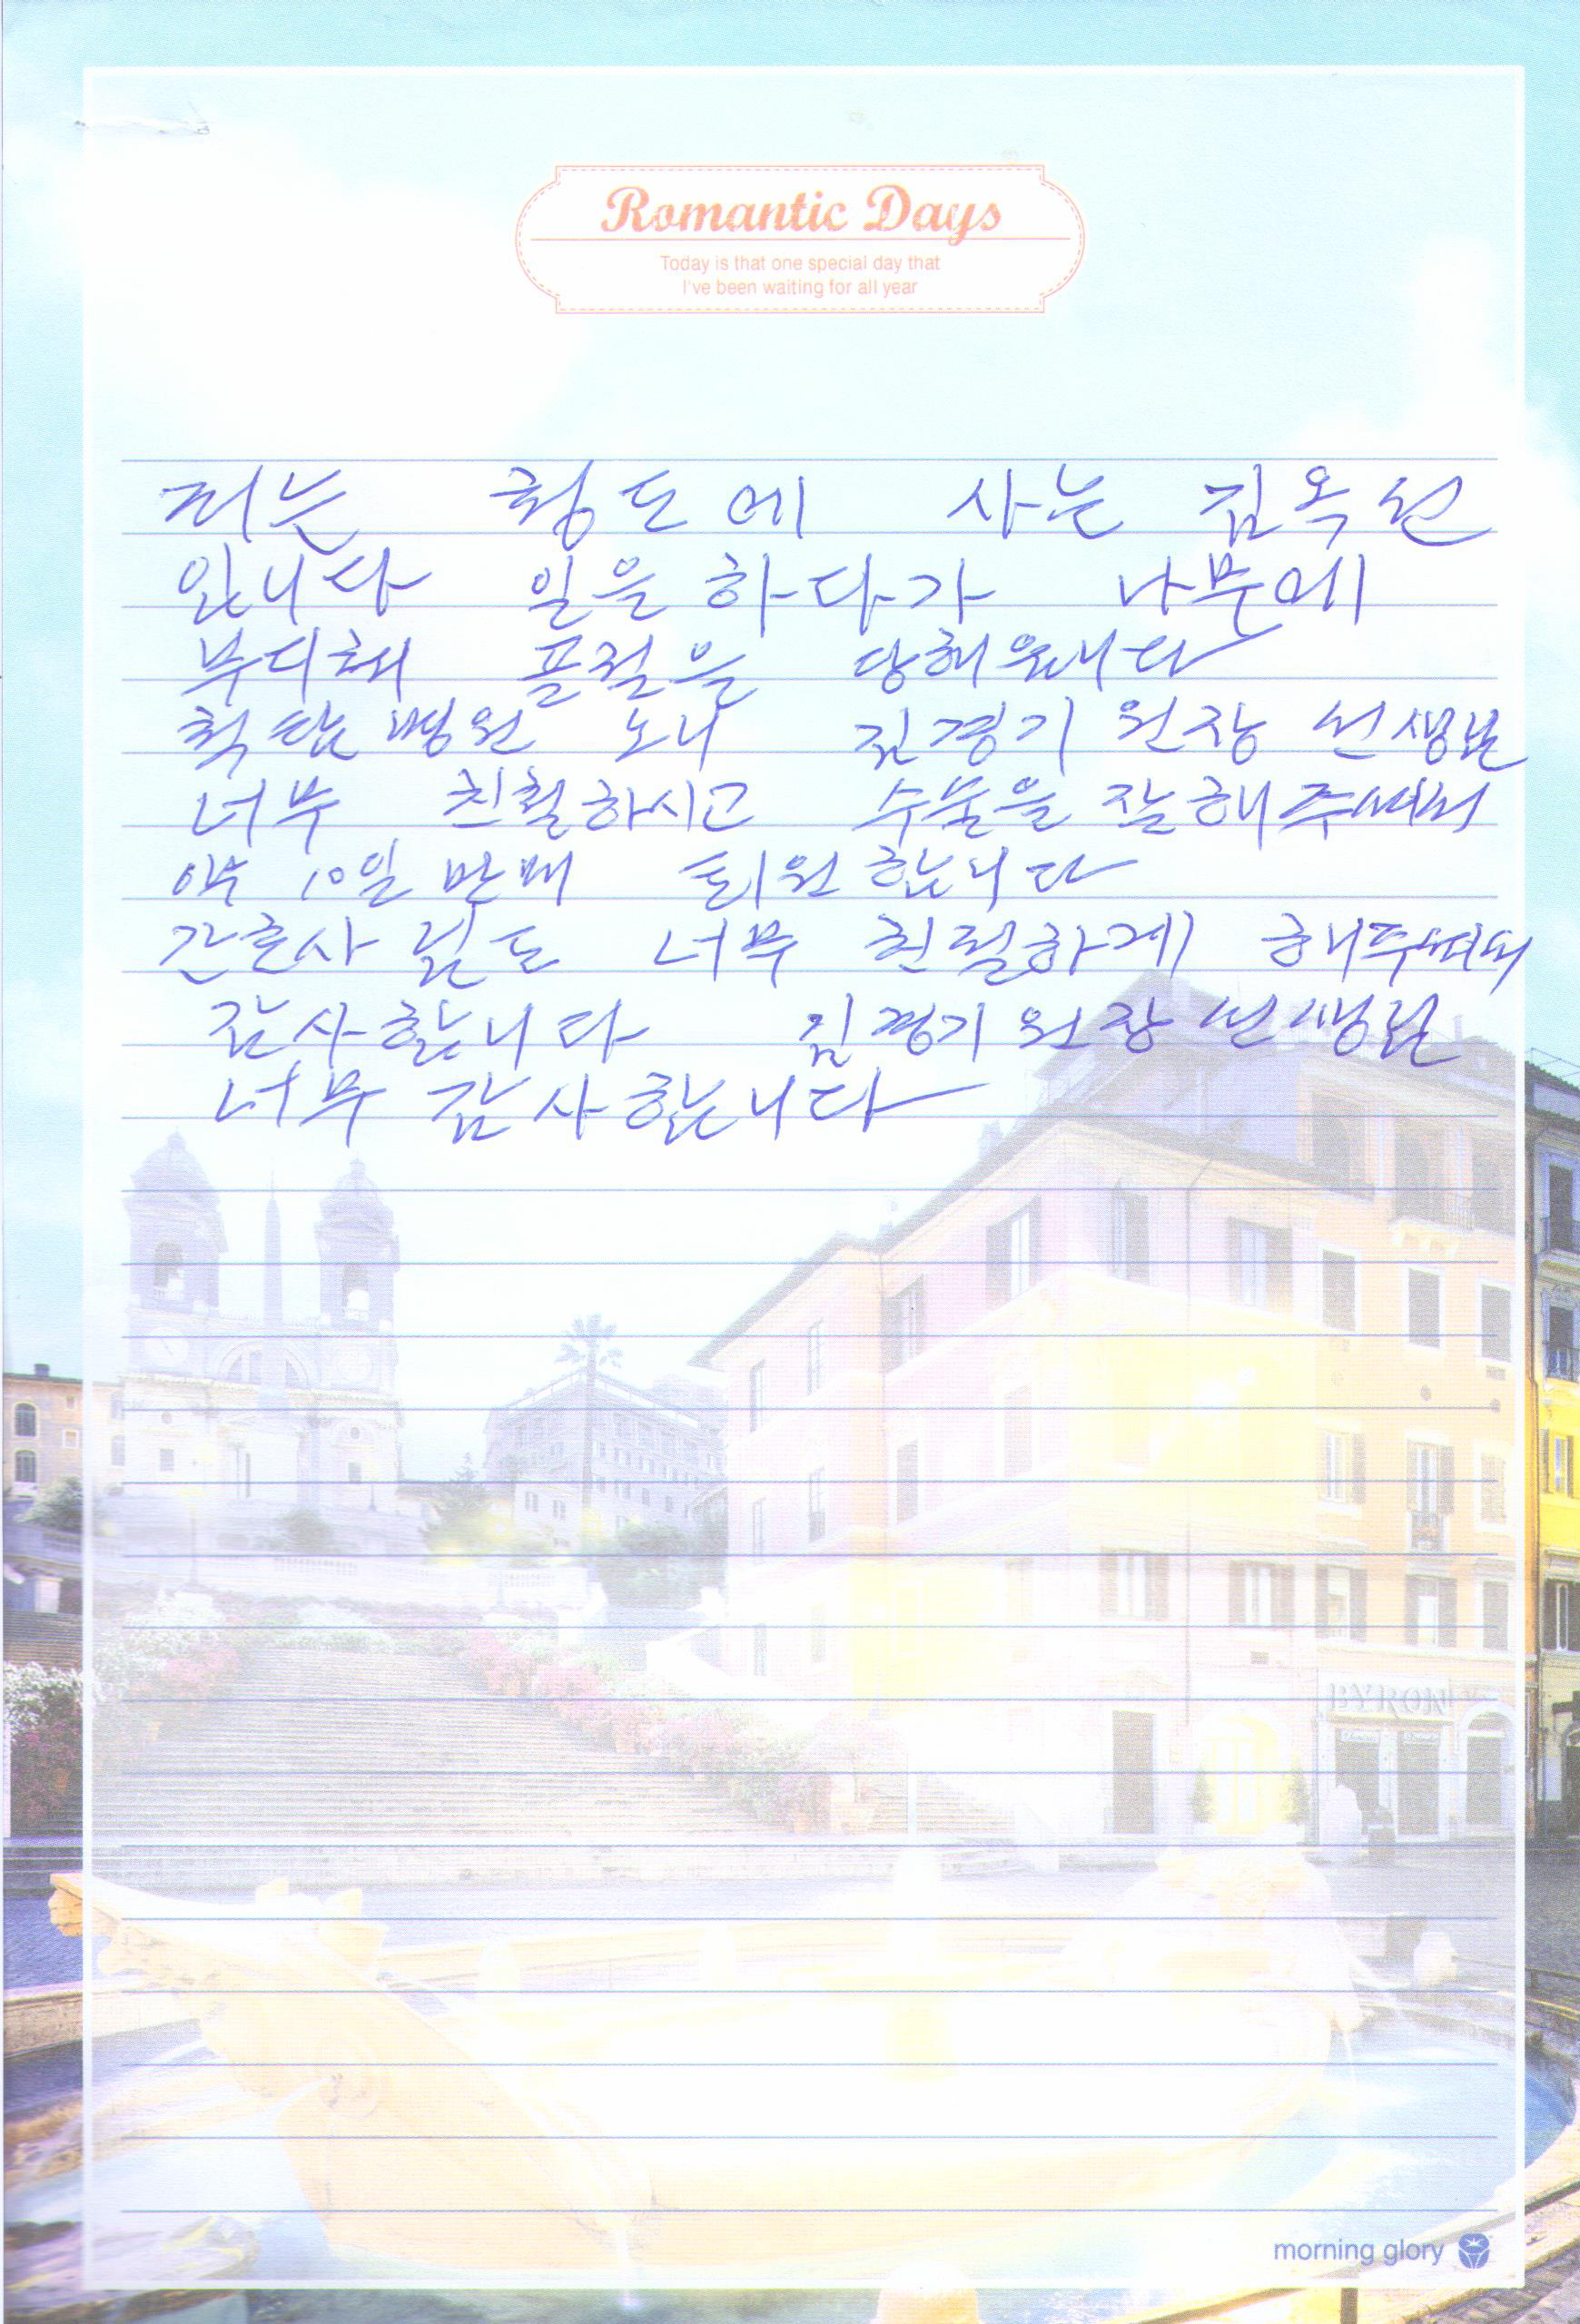 Romantic Days
Today is that one special day that
I've been waiting for all year
저는 청도에 사는 김옥선
입니다 일을 하다가 나무에
부디쳐 골절을 당해
척탑병원 오니 김경기 원장 선생님
너무 친철하시고 수술을 잘해
약 10일 만에 퇴원합니다
간호사 님도 너무 친절하게
감사합니다 김경기 원장 선생님
너무 감사합니다
BYRON
morning glory